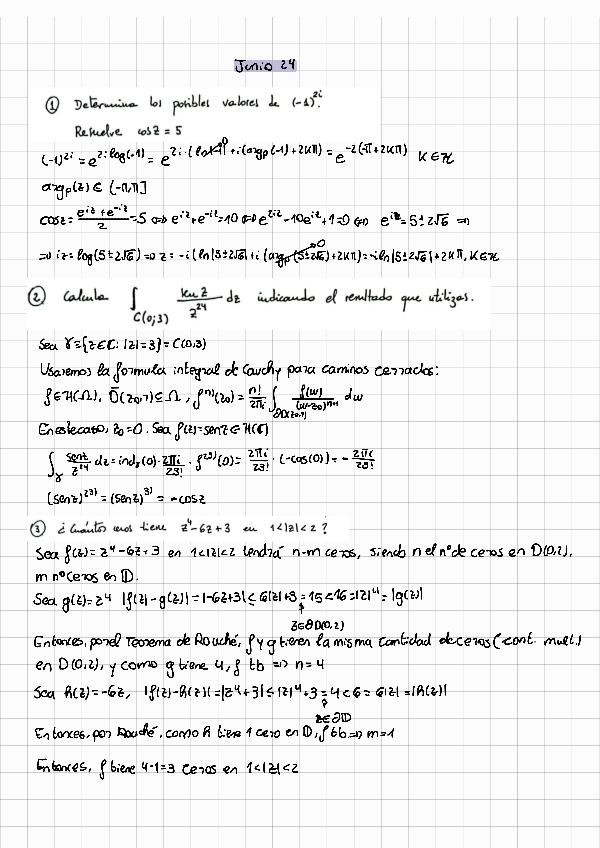 Junio 24
① Determina los posibles valores de (-1)^{2i}.
Resuelve cos z = 5
(-1)^{2i} = e^{2i·log(-1)} = e^{2i·(ln|-1|^0 + i(arg_p(-1)+2kπ)} = e^{-2(π+2kπ)} k∈ℤ
arg_p(z) ∈ (-π,π]
cos z = (e^{iz}+e^{-iz})/2 = 5 ⇔ e^{iz}+e^{-iz}=10 ⇔ e^{2iz}-10e^{iz}+1=0 ⇔ e^{iz}=5±2√6 ⇒
⇒ iz = log(5±2√6) ⇒ z = -i(ln|5±2√6| + i(arg_p(5±2√6)^0+2kπ) = -i ln|5±2√6| + 2kπ, k∈ℤ
② Calcula ∫_{C(0;3)} (sen z)/(z^{24}) dz indicando el resultado que utilizas.
Sea γ={z∈ℂ: |z|=3} = C(0,3)
Usaremos la formula integral de Cauchy para caminos cerrados:
f∈H(Ω), D̄(z₀,r)⊆Ω, f^{n)}(z₀) = n!/(2πi) ∫_{∂D(z₀,r)} f(w)/(w-z₀)^{n+1} dw
En este caso, z₀=0. Sea f(z)=sen z ∈ H(ℂ)
∫_γ (sen z)/(z^{24}) dz = ind_γ(0)·(2πi)/(23!)·f^{23)}(0) = (2πi)/(23!)·(-cos(0)) = -(2πi)/(23!)
(sen z)^{23)} = (sen z)^{3)} = -cos z
③ ¿Cuántos ceros tiene z⁴-6z+3 en 1<|z|<2?
Sea f(z)=z⁴-6z+3 en 1<|z|<2 tendrá n-m ceros, siendo n el nº de ceros en D(0,2),
m nº ceros en 𝔻.
Sea g(z)=z⁴ |f(z)-g(z)|=|-6z+3| ≤ 6|z|+3 = 15<16=|z|⁴=|g(z)|
z∈∂D(0,2)
Entonces, por el Teorema de Rouché, f y g tienen la misma cantidad de ceros (cont. mult.)
en D(0,2), y como g tiene 4, f tb ⇒ n=4
Sea h(z)=-6z, |f(z)-h(z)|=|z⁴+3| ≤ |z|⁴+3 = 4<6=6|z|=|h(z)|
z∈∂𝔻
Entonces, por Rouché, como h tiene 1 cero en 𝔻, f tb ⇒ m=1
Entonces, f tiene 4-1=3 ceros en 1<|z|<2